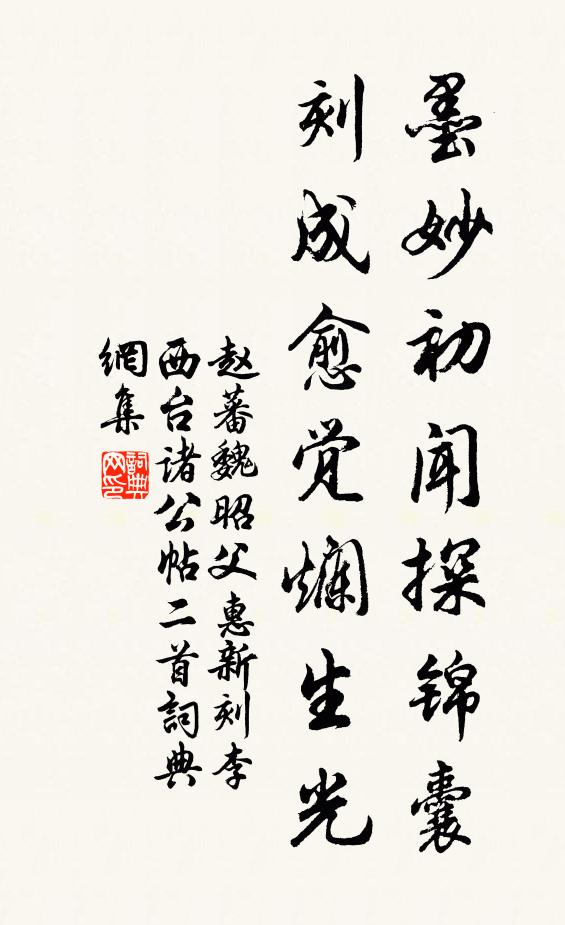 墨妙初闻探锦囊
刻成愈觉爛生光
赵蕃魏昭父惠新刻李
西台诸公帖二首詞典
網集
詞典网印